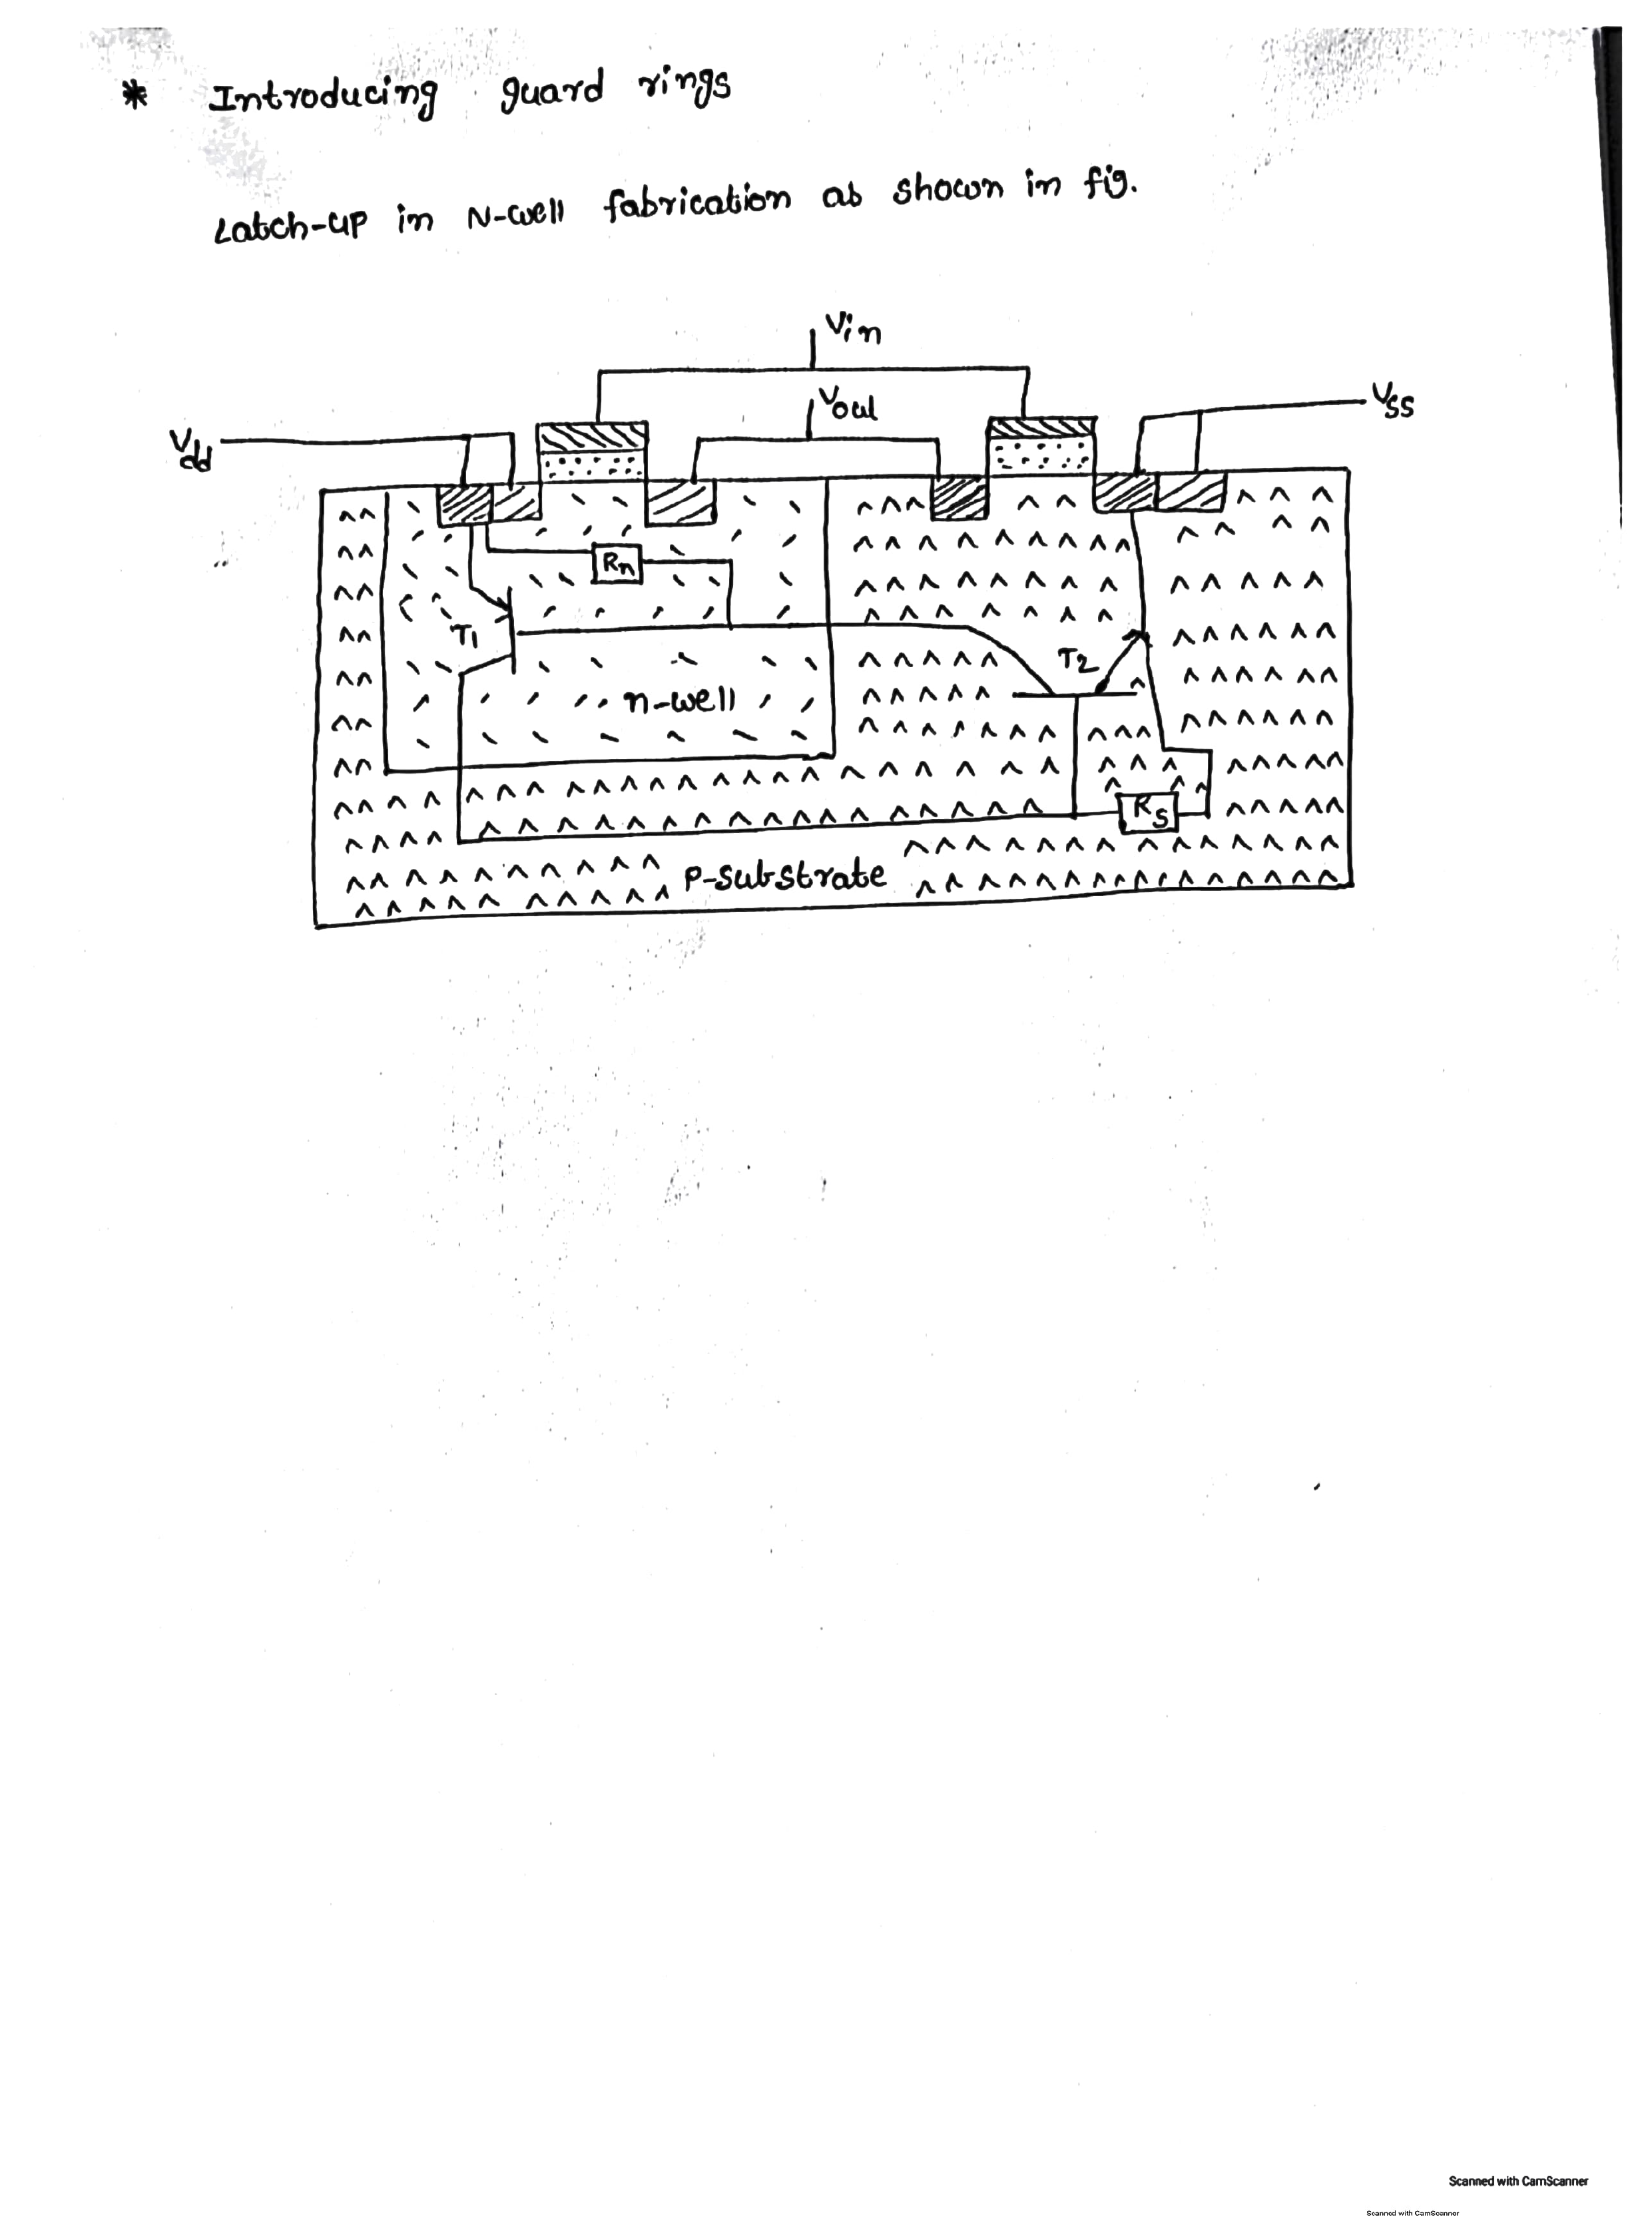 * Introducing guard rings
Latch-up in N-well fabrication as shown in fig.
Vin
Vout
Vss
Vdd
Rn
T1
T2
n-well
Rs
P-substrate
Scanned with CamScanner
Scanned with CamScanner